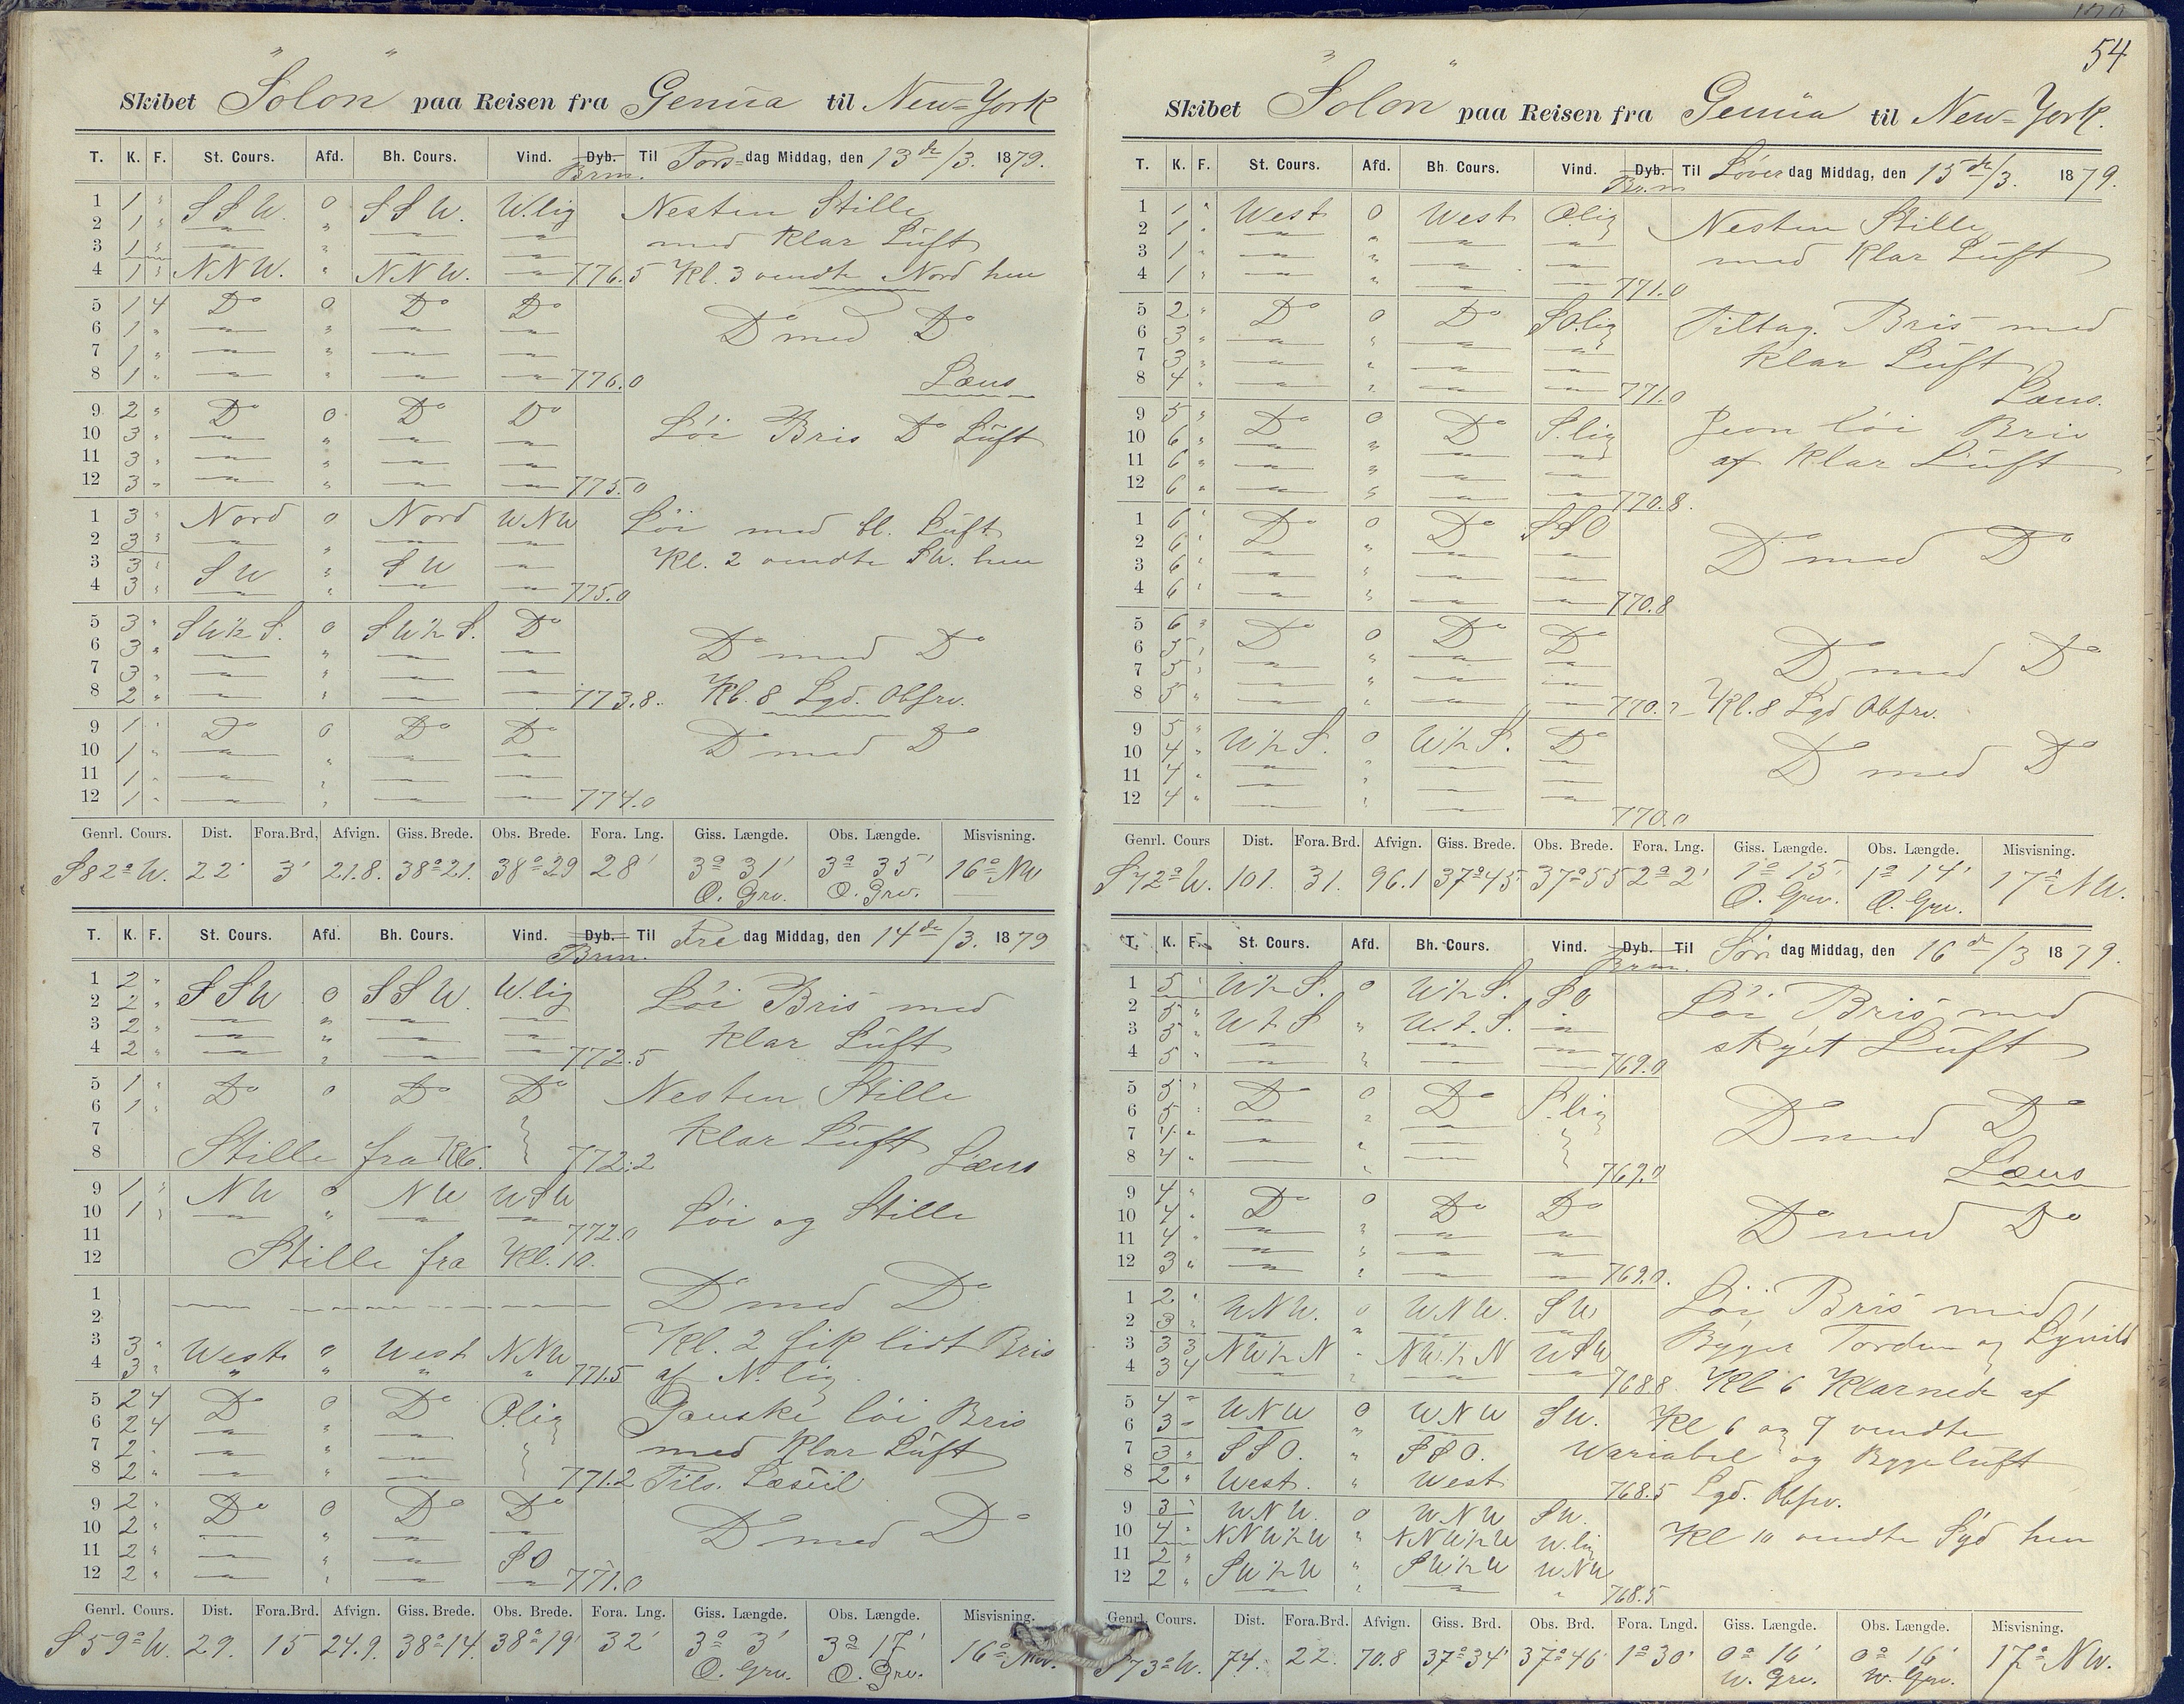 Skibet "Solon" paa Reisen fra Genüa til New-York
T. K. F. St. Cours. Afd. Bh. Cours. Vind. Dyb. Brm. Til Torsdag Middag, den 13de/3. 1879.
1 1 " S S W. 0 S S W. W.lig Nesten Stille
2 1 " — " — — med Klar Lüft
3 1 " — " — —
4 1 " N N W. " N N W. — 776.5 Kl. 3 vendte Nord hen
5 1 4 Do 0 Do Do Do med Do
6 1 " — " — —
7 1 " — " — —
8 1 " — " — — 776.0 Læns
9 2 " Do 0 Do Do Löi Bris Do Lüft
10 3 " — " — —
11 3 " — " — —
12 3 " — " — — 775.0
1 3 " Nord 0 Nord W N W Löi med bl. Lüft
2 3 " — " — — Kl. 2 vendte S W. hen
3 3 " S W " S W —
4 3 " — " — — 775.0
5 3 " S W t. S. 0 S W t. S. Do Do med Do
6 3 " — " — —
7 3 " — " — —
8 2 " — " — — 773.8. Kl. 8 Lgd. Obsrv.
9 1 " Do 0 Do Do Do med Do
10 1 " — " — —
11 1 " — " — —
12 1 " — " — — 774.0
Genrl. Cours. Dist. Fora.Brd, Afvign. Giss. Brede. Obs. Brede. Fora. Lng. Giss. Længde. Obs. Længde. Misvisning.
S 82° W. 22' 3' 21.8. 38°21. 38°29 28' 3° 31' O. Grv. 3° 35' O. Grv. 16° NW
T. K. F. St. Cours. Afd. Bh. Cours. Vind. Dyb. Brm. Til Fredag Middag, den 14de/3. 1879
1 2 " S S W 0 S S W. W.lig Löi Bris med
2 2 " — " — — Klar Lüft
3 2 " — " — —
4 2 " — " — — 772.5
5 1 " Do 0 Do Do Nesten Stille
6 1 " Klar Lüft
7
8 Stille fra Kl 6. 772.2 Læns
9 1 " N W 0 N W W S W Löi og Stille
10 1 " — " — —
11 772.0
12 Stille fra Kl. 10.
1 — — — — Do med Do
2 Kl. 2 fik lidt Bris
3 3 " West " West N N W af N.lig
4 3 " " " " " 771.5
5 2 4 Do 0 Do O.lig Ganske löi Bris
6 2 4 — " — med Klar Lüft
7 2 " — " —
8 2 " — " — 771.2 Tils. Læseil
9 2 " Do 0 Do Do Do med Do
10 2 " — " — —
11 2 " — " — S O
12 2 " — " — — 771.0
Genrl. Cours. Dist. Fora.Brd. Afvign. Giss. Brede. Obs. Brede. Fora. Lng. Giss. Længde. Obs. Længde. Misvisning.
S 59° W. 29. 15 24.9. 38°14. 38°19' 32' 3° 3' O. Grv. 3° 17' O. Grv. 16° NW.
54
Skibet "Solon" paa Reisen fra Genüa til New-York.
T. K. F. St. Cours. Afd. Bh. Cours. Vind. Dyb. Brm Til Löverdag Middag, den 15de/3. 1879.
1 1 " West 0 West O.lig Nesten Stille
2 1 " — " — — med Klar Lüft
3 1 " — " — —
4 1 " — " — — 771.0
5 2 " Do 0 Do S O.lig Tiltag. Bris med
6 3 " — " — — Klar Lüft
7 3 " — " — —
8 4 " — " — — 771.0 Læns.
9 5 " Do 0 Do S.lig Jevn löi Bris
10 6 " — " — — af Klar Lüft
11 6 " — " — —
12 6 " — " — — 770.8.
1 6 " Do 0 Do S S O Do med Do
2 6 " — " — —
3 6 " — " — —
4 6 " — " — — 770.8
5 6 " Do 0 Do Do Do med Do
6 5 " — " — —
7 5 " — " — —
8 5 " — " — — 770. Kl. 8 Lgd Obsrv.
9 5 " W t. S. 0 W t. S. Do Do med Do
10 4 " — " — —
11 4 " — " — —
12 4 " — " — — 770.0
Genrl. Cours Dist. Fora.Brd. Afvign. Giss. Brede. Obs. Brede. Fora. Lng. Giss. Længde. Obs. Længde. Misvisning.
S 72° W. 101. 31. 96.1 37°45' 37°55 2° 2' 1° 15' O. Grv. 1° 14' O. Grv. 17° N W.
T. K. F. St. Cours. Afd. Bh. Cours. Vind. Dyb. Brm. Til Söndag Middag, den 16de/3 1879.
1 5 " W t. S. 0 W t. S. S O Löi Bris med
2 5 " — skyet Lüft
3 5 " W t. S " W. t. S. —
4 5 " — " — — 769.0
5 5 " Do 0 Do S.lig Do med Do
6 5 " — " —
7 4 " — " —
8 4 " — " — 769.0 Læns
9 4 " Do 0 Do Do Do med Do
10 4 " — " — —
11 4 " — " — —
12 3 " — " — — 769.0.
1 2 " W N W. 0 W N W. S W Löi Bris med
2 3 " — " — — Byger Torden og Lynild
3 3 3 N W t. N " N W. t. N W S W
4 3 4 — " — — 768.8 Kl 6 Klarnede af
5 4 " W N W 0 W N W S W. Kl 6 og 7 vendte
6 3 " — — Wariabel og Byge lüft
7 3 " S S O. " S S O.
8 2 " West. " West 768.5 Lgd. Obsrv.
9 3 " W N W. 0 W N W S W.
10 4 " N N W t. W " N N W t. W W.lig Kl 10 vendte Syd hen
11 2 " S W t. W " S W. t. W W. N W
12 2 " — " — " 768.5
Genrl. Cours. Dist. Fora.Brd. Afvign. Giss. Brd. Obs. Brd. Fora. Lngd. Giss. Længde. Obs. Længde. Misvisning.
S 73° W. 74. 22. 70.8 37°34' 37°46' 1° 30' 0° 16' W. Grv. 0° 16' W. Grv. 17° N W.